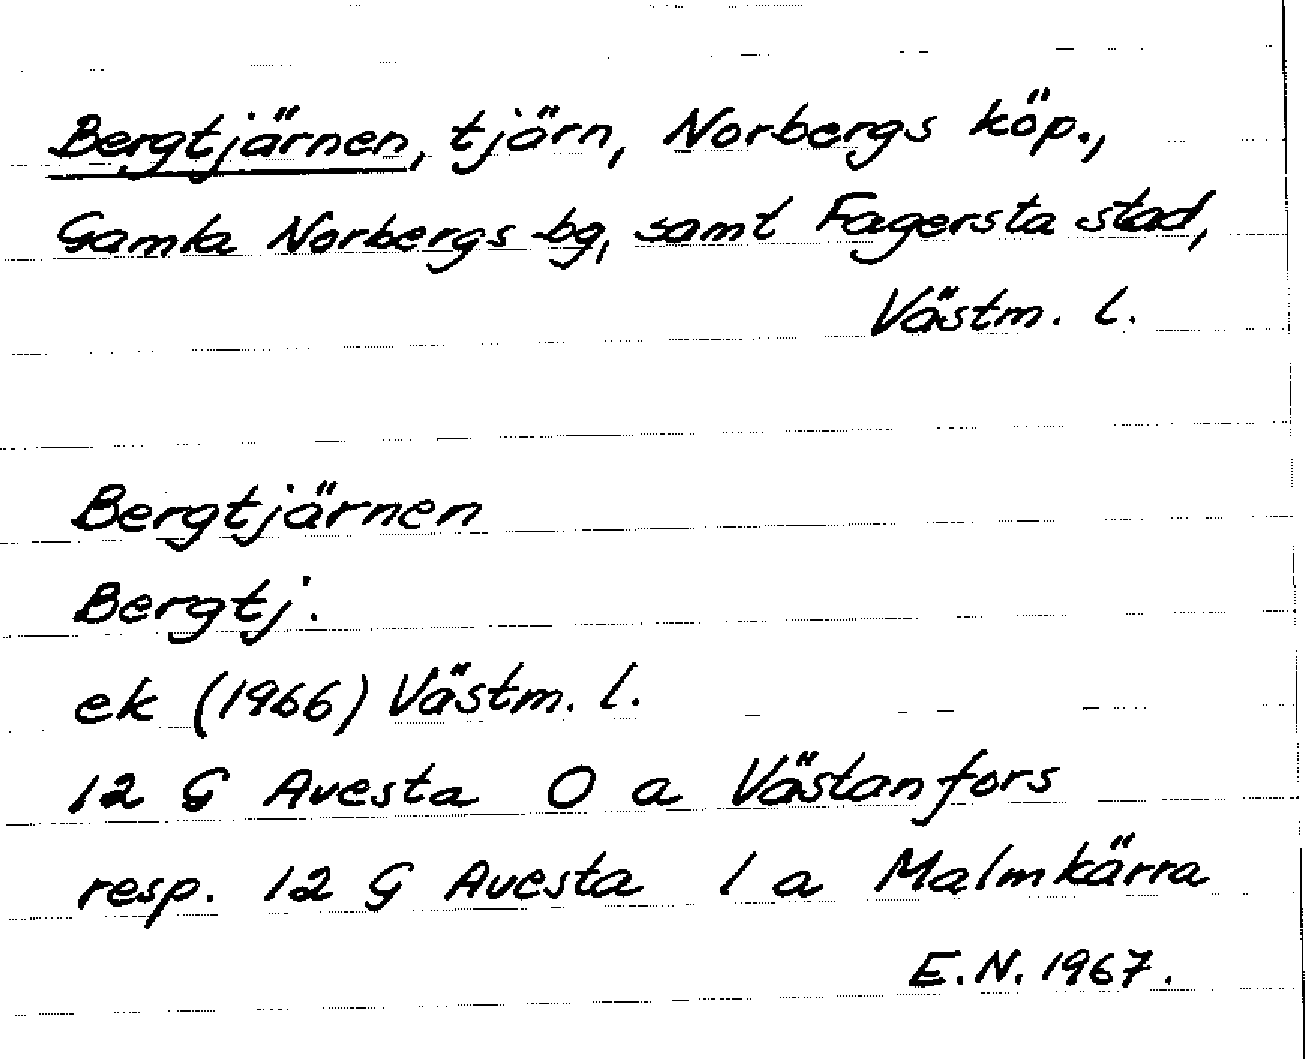 Bergtjärnen, tjärn, Norbergs köp.,
Gamla Norbergs bg, samt Fagersta stad,
Västm. l.
Bergtjärnen
Bergtj.
ek (1966) Västm. l.
12 G Avesta 0 a Västanfors
resp. 12 G Avesta 1 a Malmkärra
E.N. 1967.